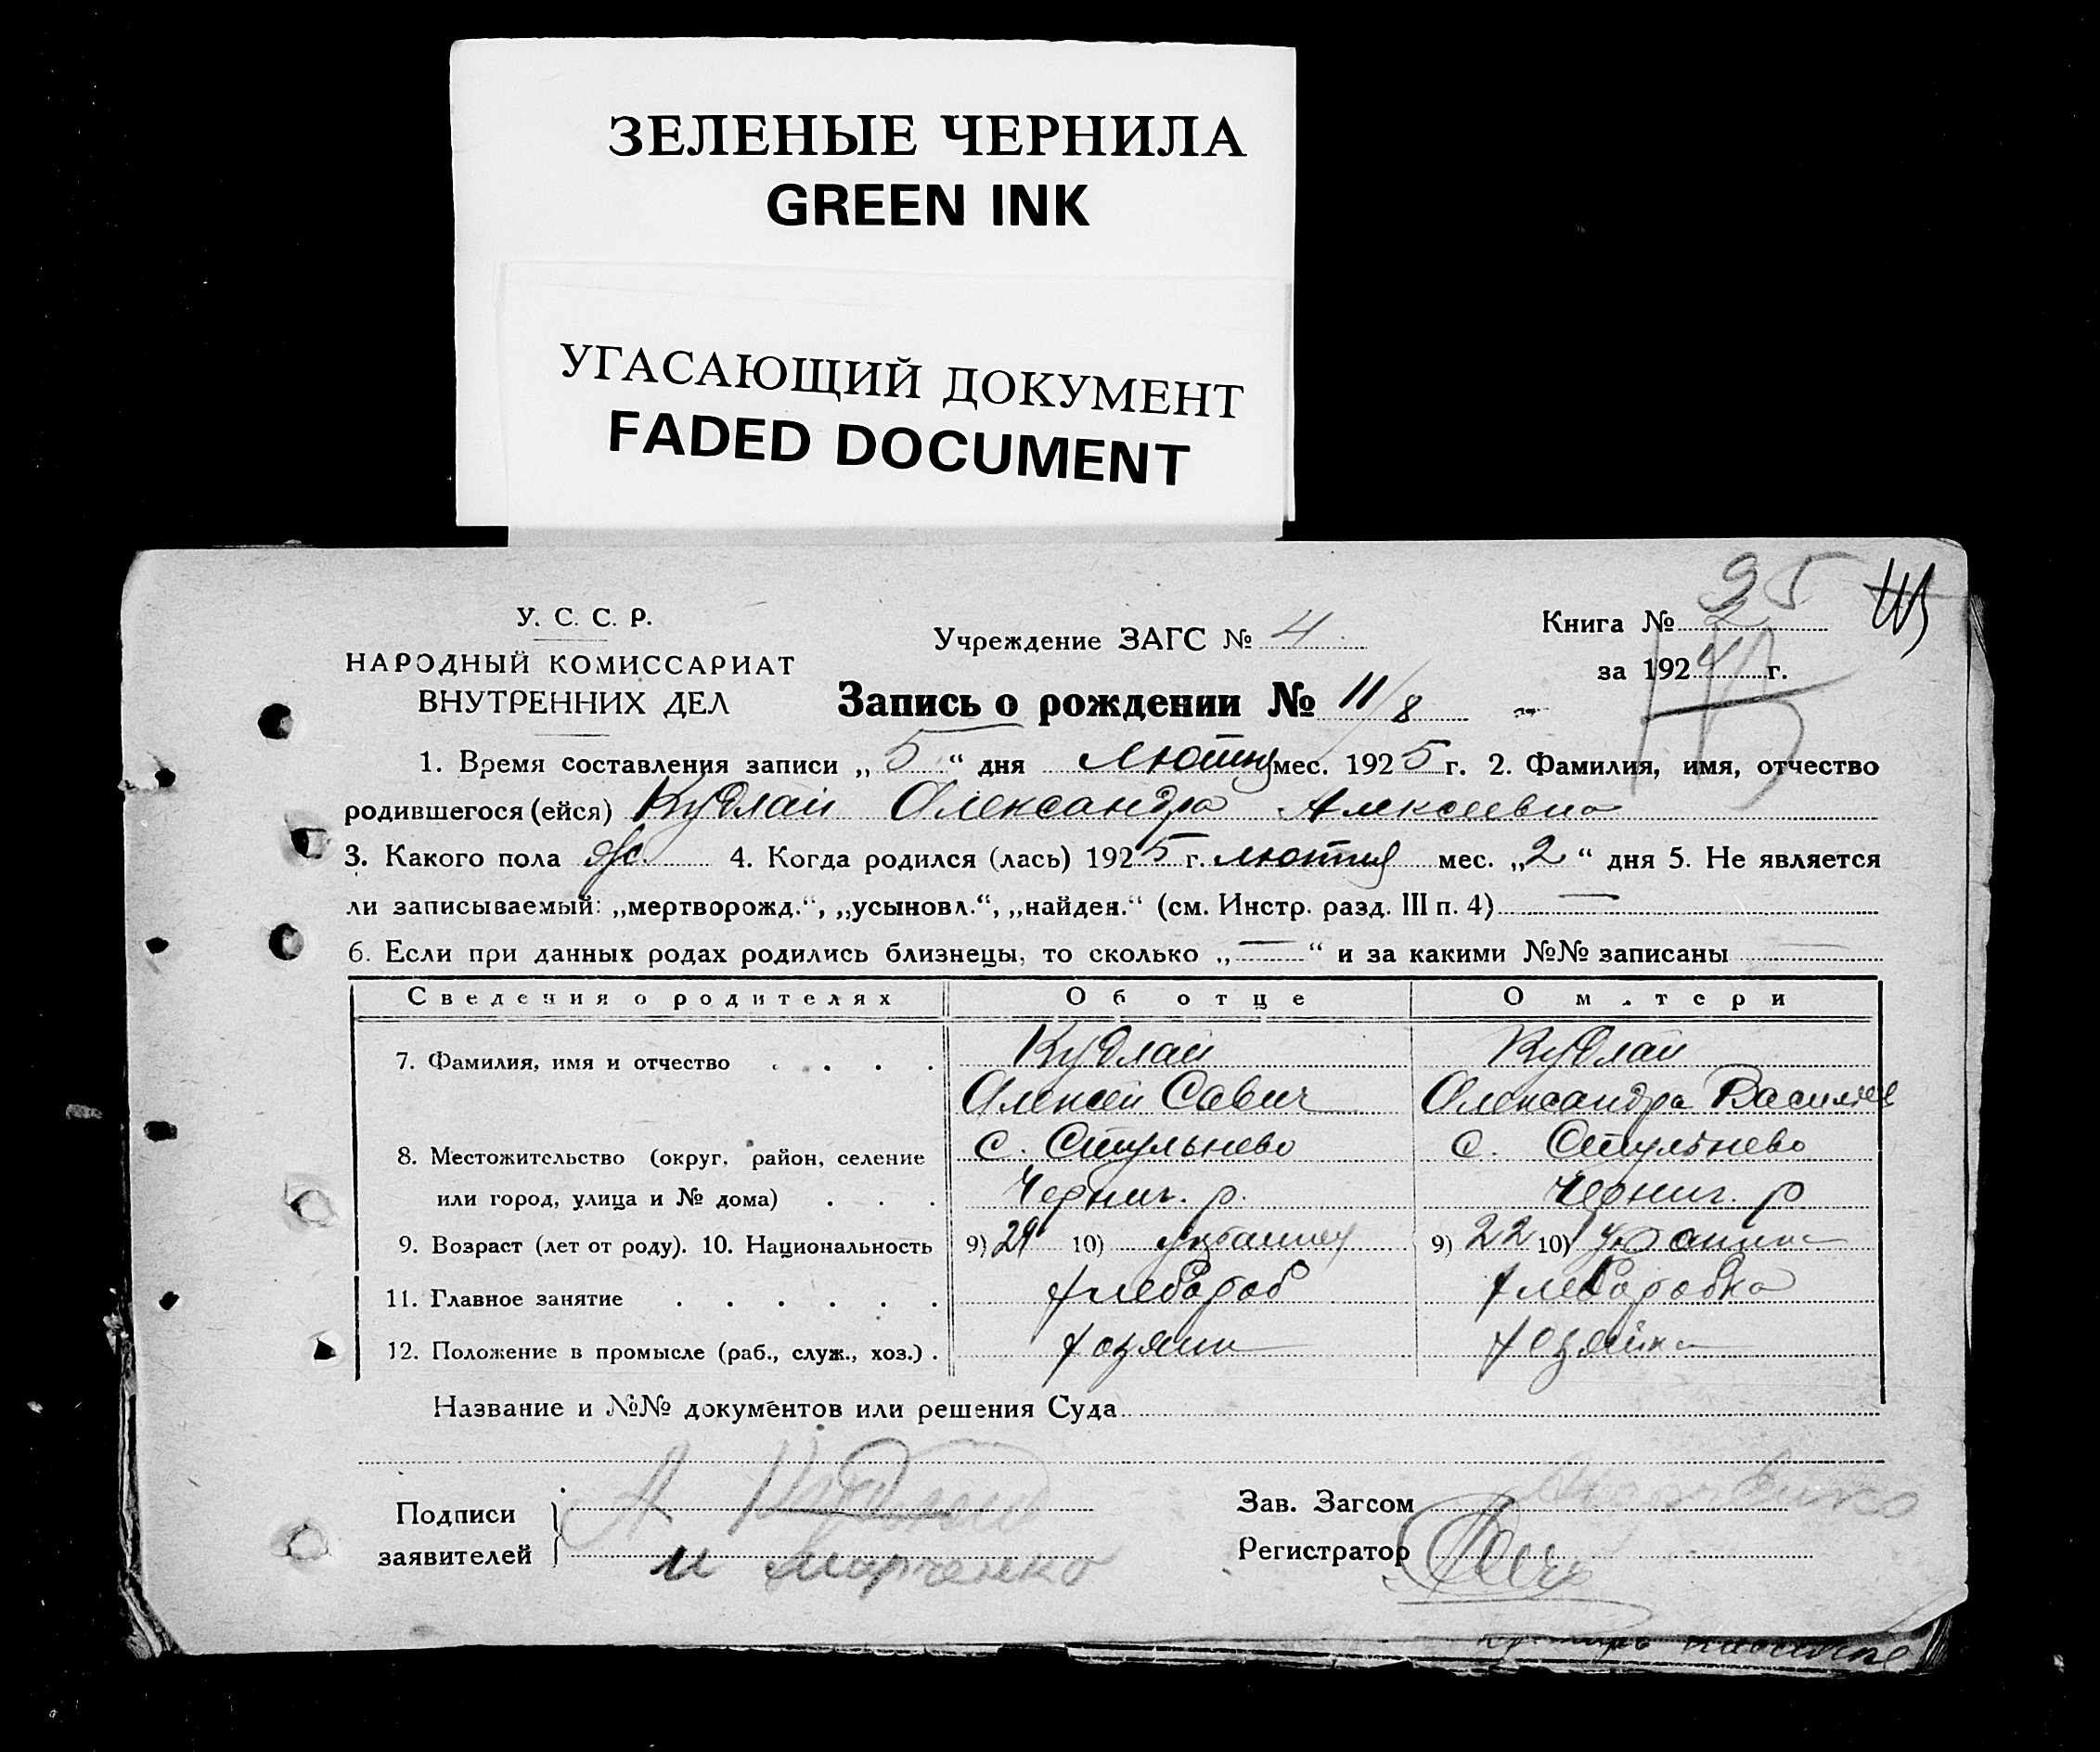 ЗЕЛЕНЫЕ ЧЕРНИЛА
GREEN INK
УГАСАЮЩИЙ ДОКУМЕНТ
FADED DOCUMENT
35
У. С. С. Р.
НАРОДНЫЙ КОМИССАРИАТ
ВНУТРЕННИХ ДЕЛ
Учреждение ЗАГС № 4
Книга № 2
за 1924 г.
Запись о рождении № 11/8
1. Время составления записи „5“ дня Лютня мес. 1925 г. 2. Фамилия, имя, отчество
родившегося (ейся) Кудлай Олександра Алексеевна
3. Какого пола ж. 4. Когда родился (лась) 1925 г. лютня мес. „2“ дня 5. Не является
ли записываемый: „мертворожд.“, „усыновл.“, „найден.“ (см. Инстр. разд. III п. 4) —
6. Если при данных родах родились близнецы, то сколько „—“ и за какими №№ записаны —
Сведения о родителях Об отце О матери
7. Фамилия, имя и отчество Кудлай Кудлай
Алексей Савич Олександра Василиев
8. Местожительство (округ, район, селение с. Стульнево с. Стульнево
или город, улица и № дома) Черниг. р. Черниг. р
9. Возраст (лет от роду). 10. Национальность 9) 29 10) 9) 22 10)
11. Главное занятие хлебороб хлеборобка
12. Положение в промысле (раб., служ., хоз.) хозяин хозяйка
Название и №№ документов или решения Суда
Подписи А Кудлай
заявителей и Марченко
Зав. Загсом
Регистратор